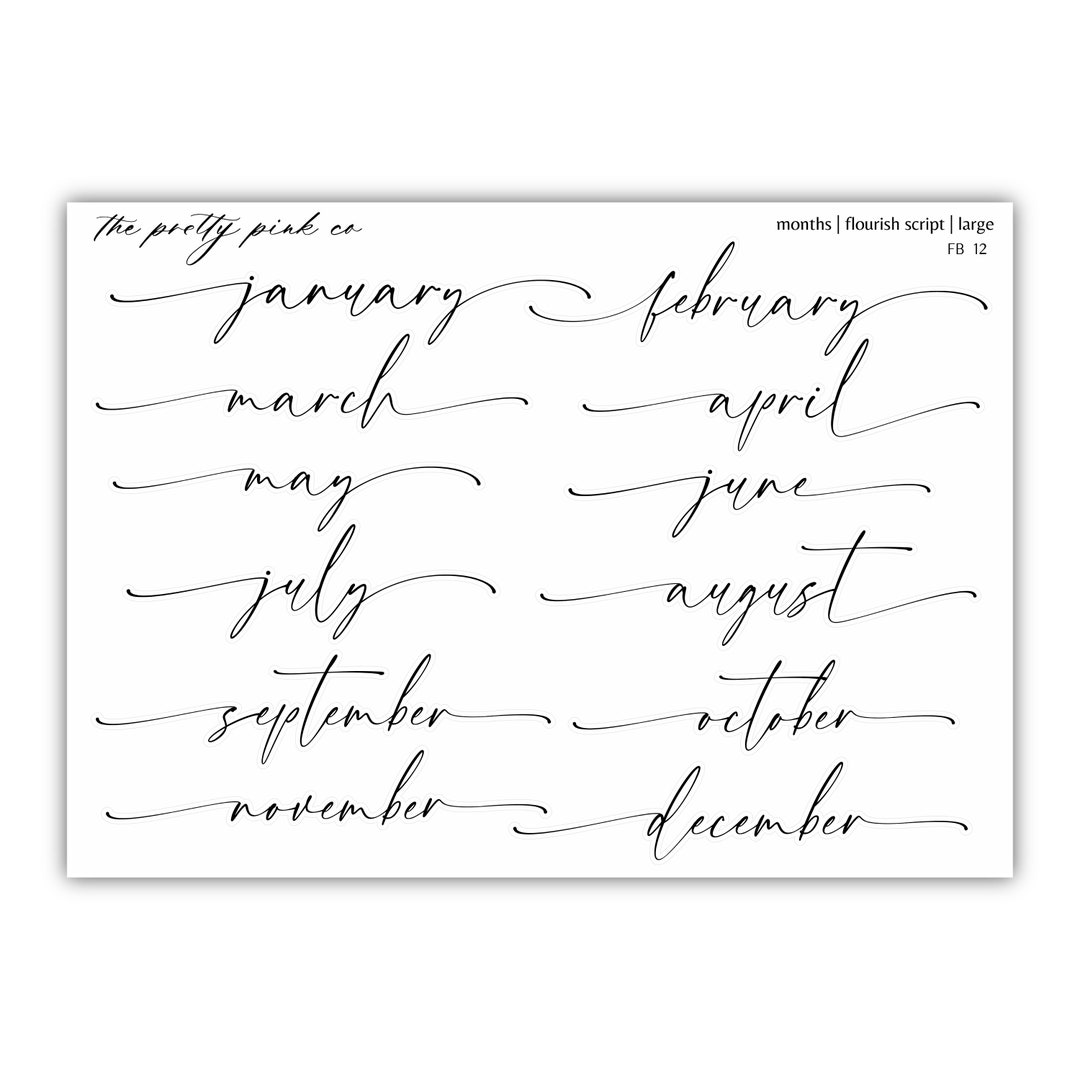 the pretty pink co
months | flourish script | large
FB 12
january february
march april
may june
july august
september october
november december